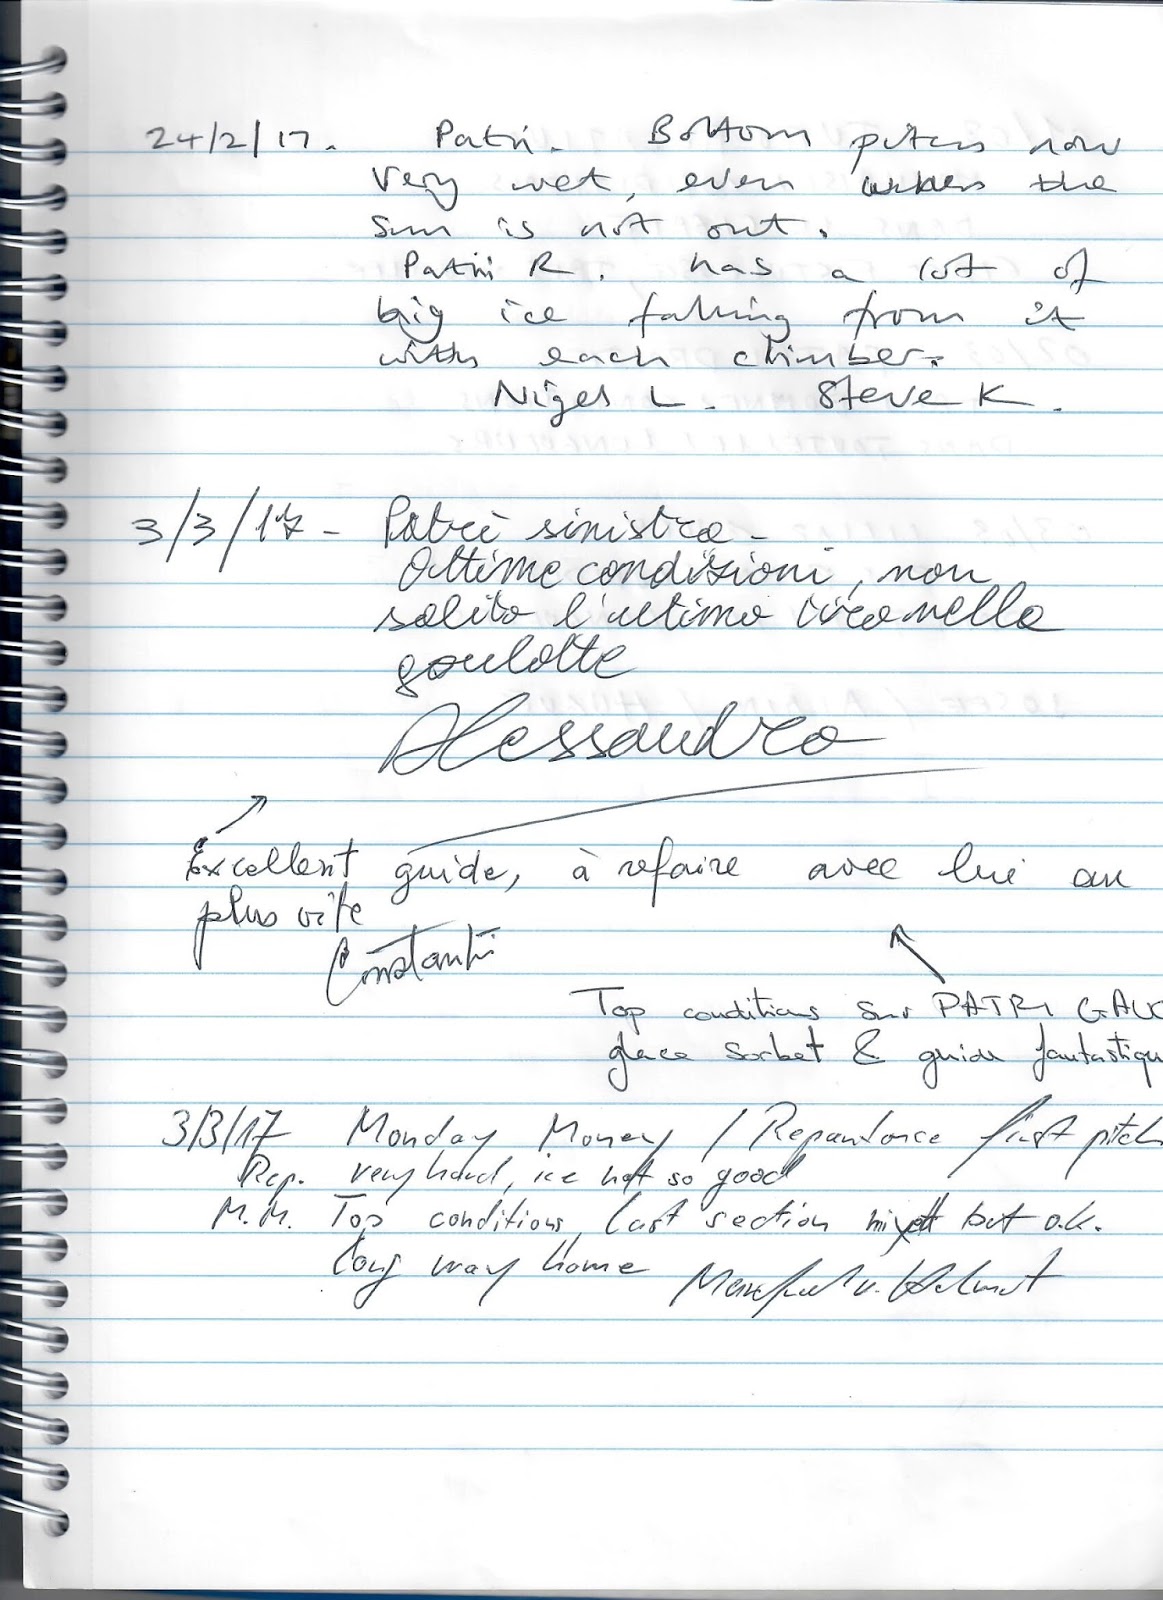 24/2/17. Patri. Bottom pitch now
very wet, even when the
sun is not out.
Patri R. has a lot of
big ice falling from it
with each climber.
Nigel L. Steve K.
3/3/17 - Patrì sinistra -
Ottime condizioni, non
salito l'ultimo tiro nella
goulotte
Alessandro
Excellent guide, à refaire avec lui au
plus vite
Constantin
Top conditions sur PATRI GAUC
glace sorbet & guide fantastiqu
3/3/17 Monday Money / Repentance first pitch
Rep. very hard, ice not so good
M.M. Top conditions, last section mixed but o.k.
long way home